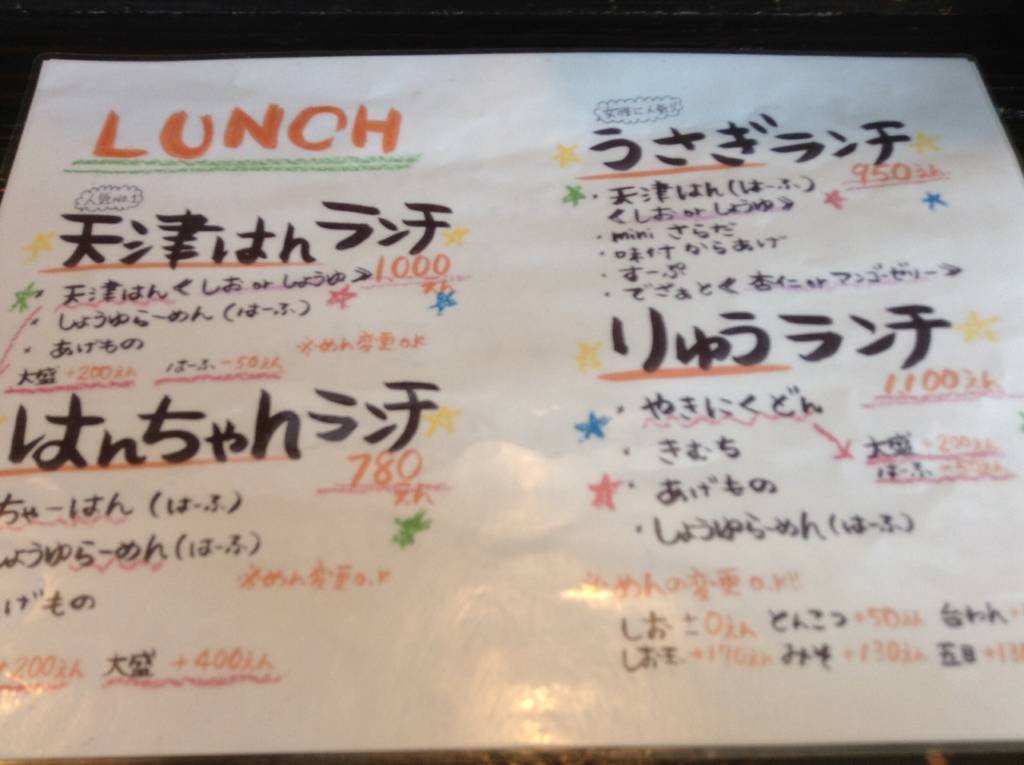 LUNCH
人気NO.1
天津はんランチ
1000えん
・天津はん<しお or しょうゆ>
・しょうゆらーめん(はーふ)
・あげもの
※めん変更o.k
大盛+200えん はーふ-50えん
はんちゃんランチ
780えん
ちゃーはん(はーふ)
しょうゆらーめん(はーふ)
あげもの
※めん変更o.k
+200えん 大盛+400えん
女性に人気!!
うさぎランチ
950えん
・天津はん(はーふ)
<しお or しょうゆ>
・mini さらだ
・味付からあげ
・すーぷ
・でざぁと<杏仁 or マンゴーゼリー>
りゅうランチ
1100えん
・やきにくどん
大盛+200えん
はーふ-50えん
・きむち
・あげもの
・しょうゆらーめん(はーふ)
※めんの変更o.k!!
しお・±0えん とんこつ+50えん 台わん+
+170えん みそ+130えん 五目+130